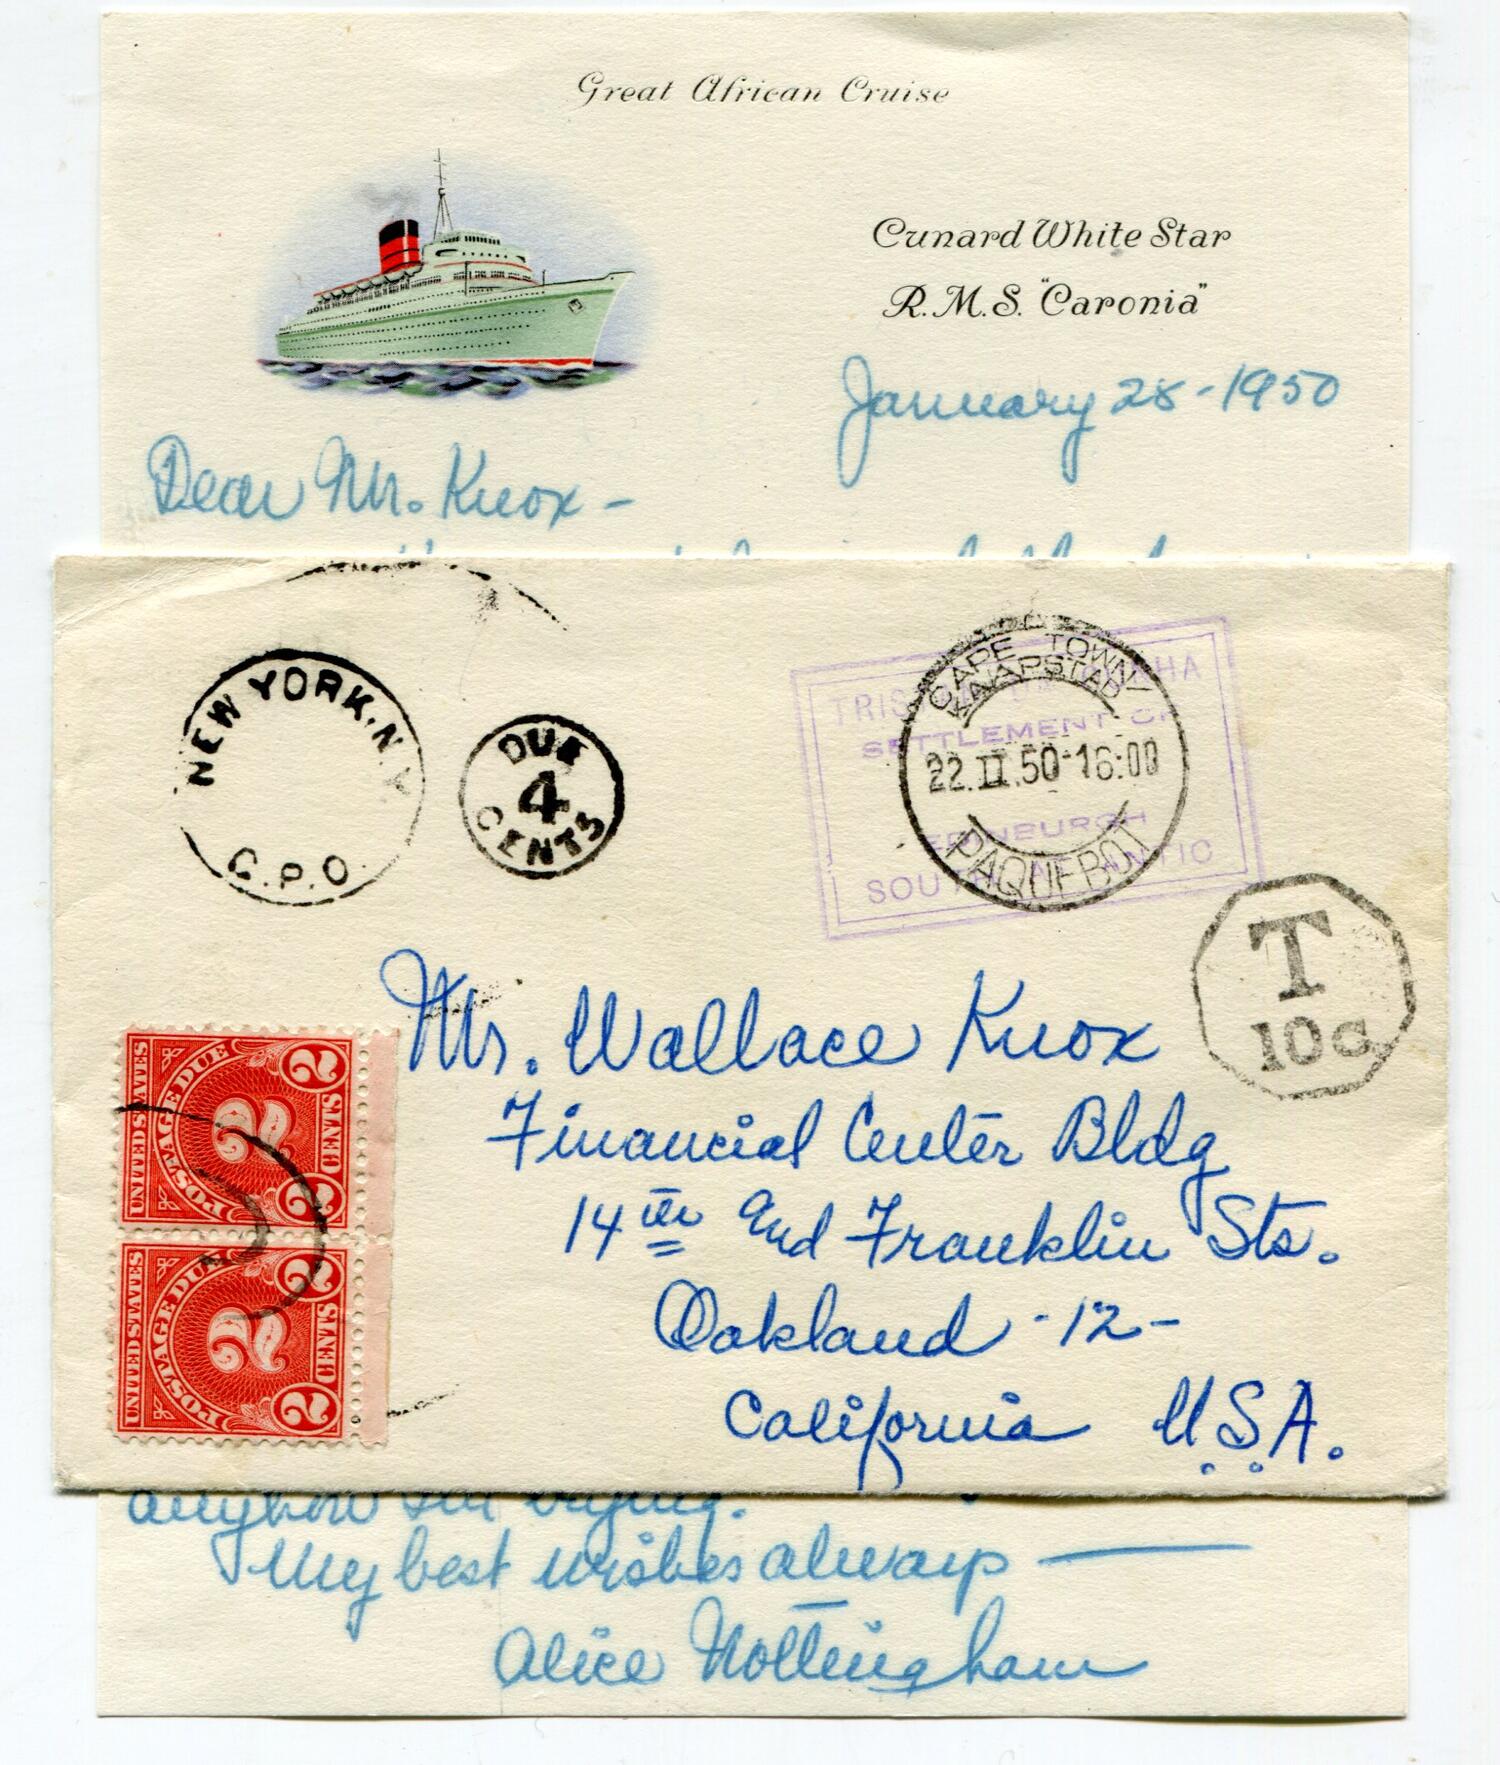 Great African Cruise
Cunard White Star
R.M.S. "Caronia"
January 28-1950
Dear Mr. Knox -
NEW YORK, N.Y.
G.P.O.
DUE
4
CENTS
TRISTAN DA CUNHA
SETTLEMENT OF
EDINBURGH
SOUTH ATLANTIC
CAPE TOWN
KAAPSTAD
22.II.50-16:00
PAQUEBOT
T
10c
Mr. Wallace Knox
Financial Center Bldg
14th and Franklin Sts.
Oakland -12-
California U.S.A.
UNITED STATES
POSTAGE DUE
2
2 CENTS 2
UNITED STATES
POSTAGE DUE
2
2 CENTS 2
anyhow I'm trying.
My best wishes always —
Alice Nottingham